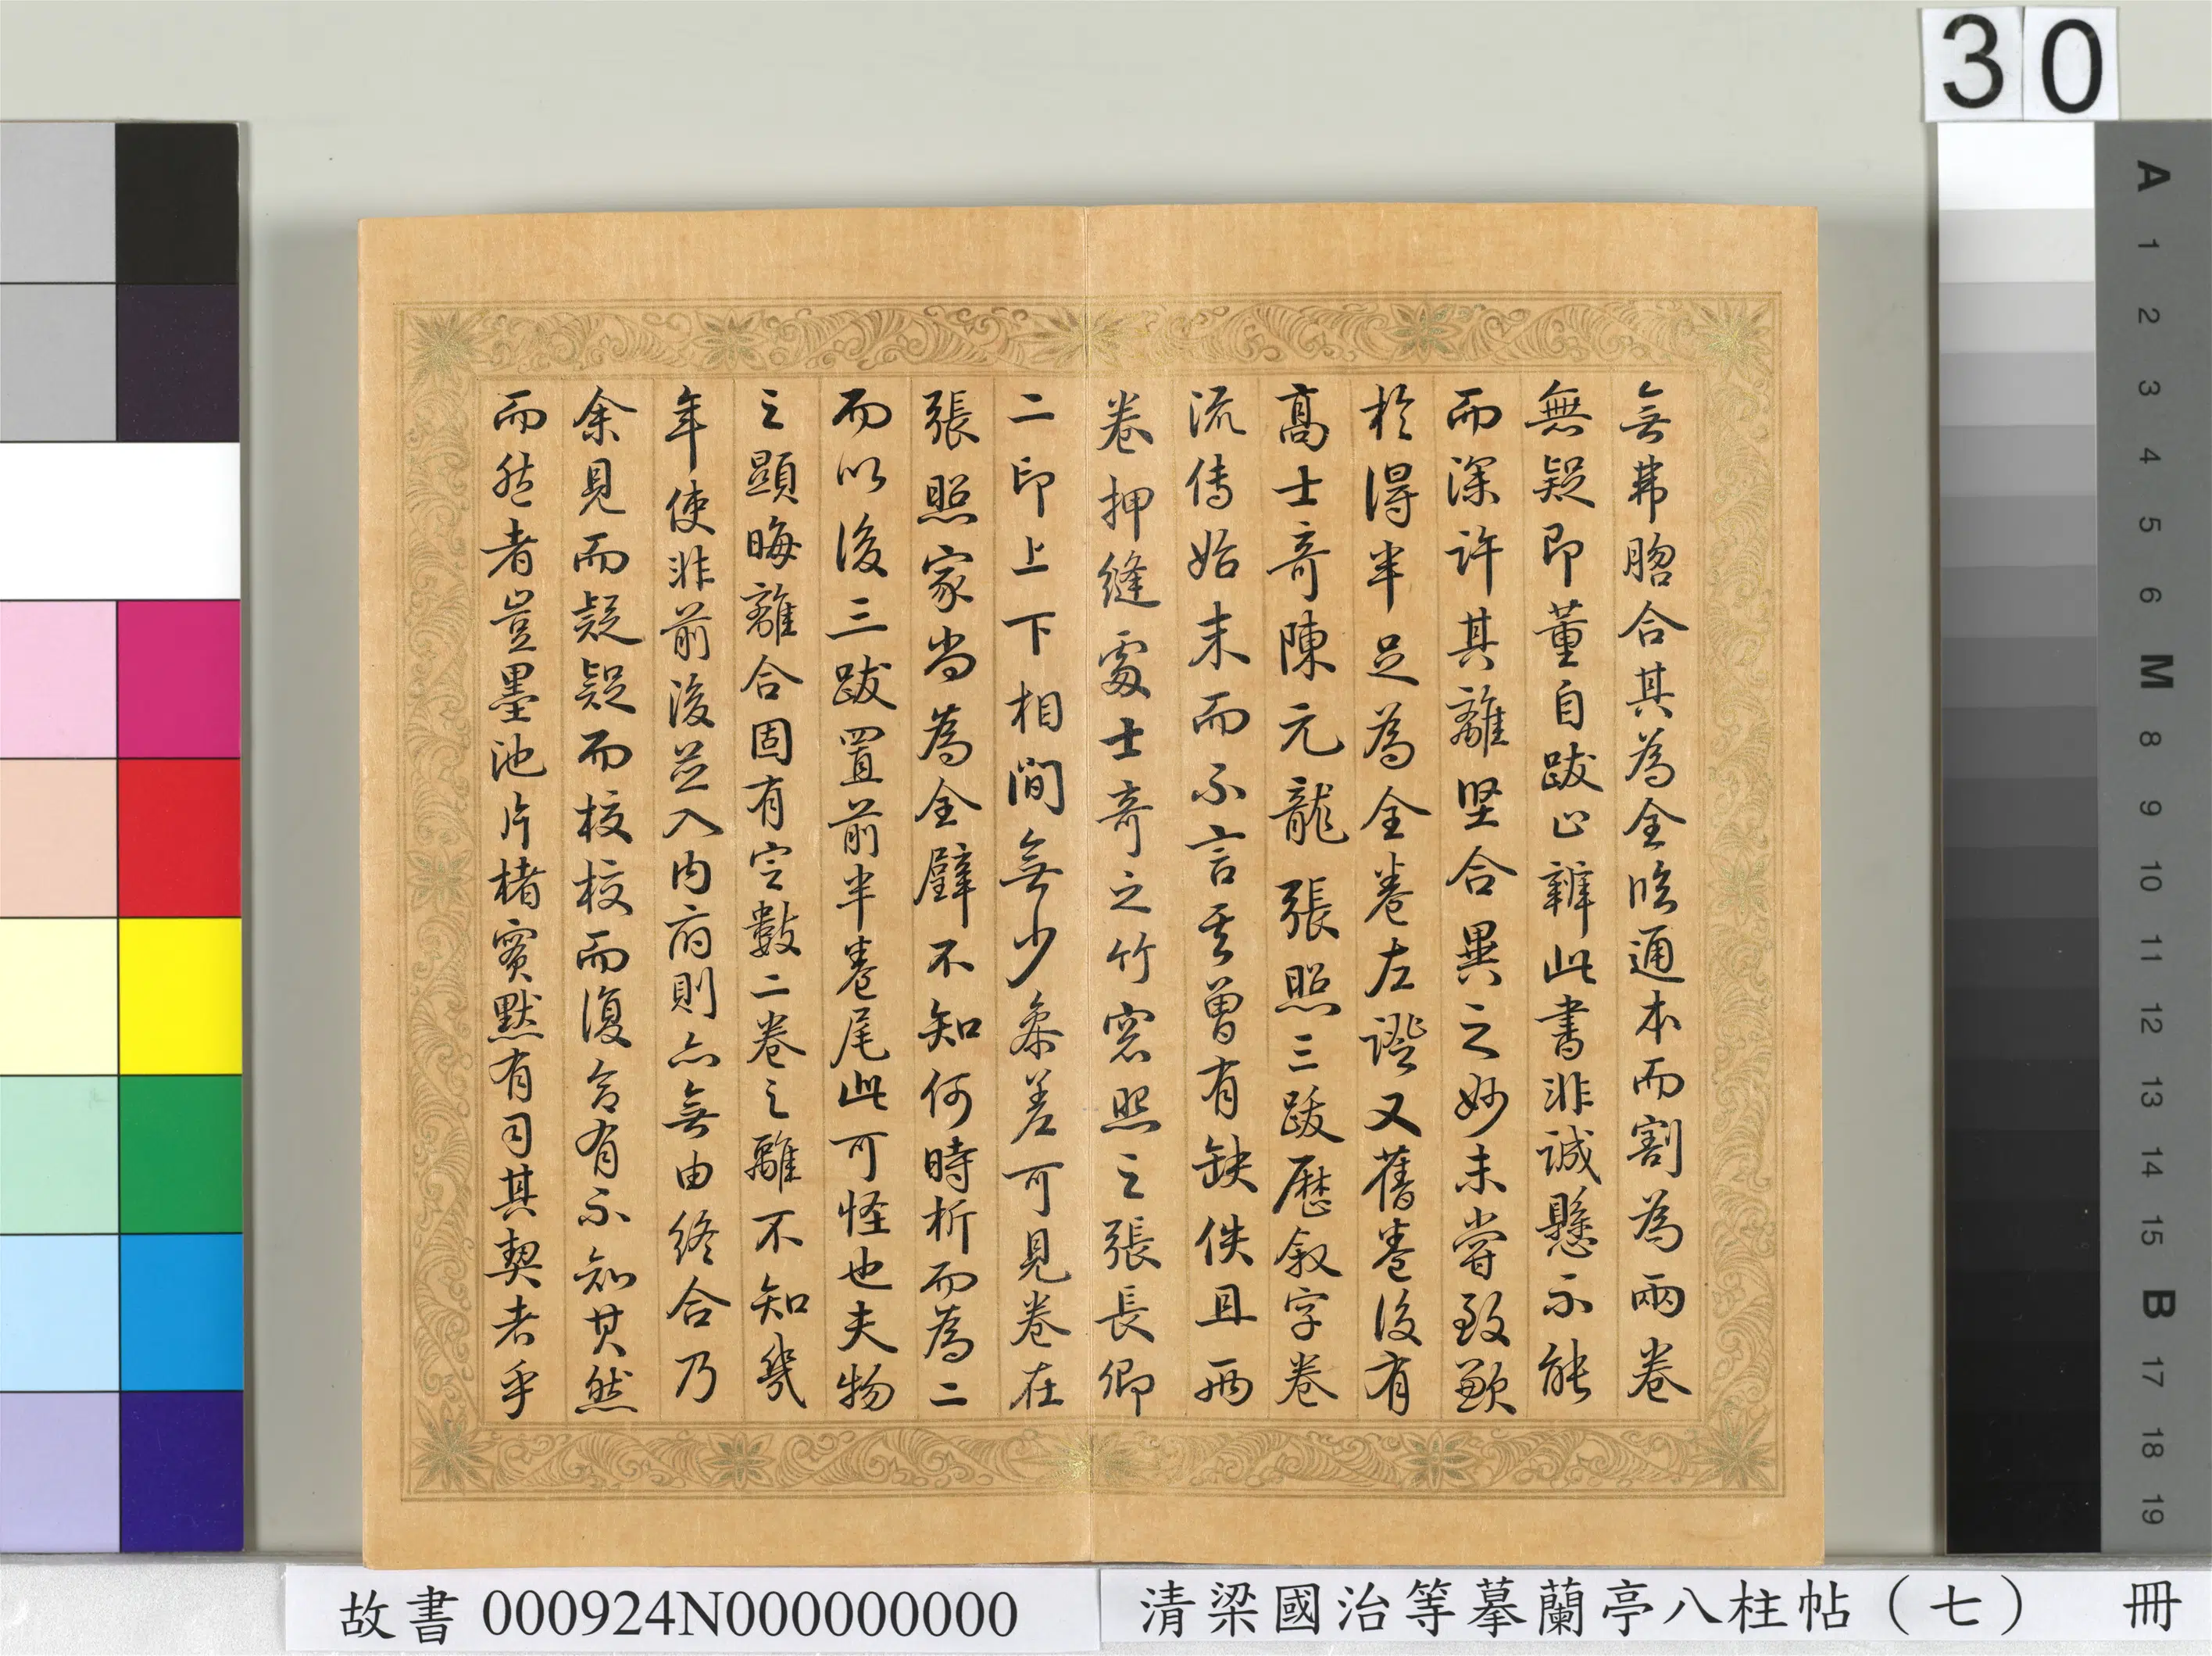 30
無弗脗合其為全臨通本而割為兩卷
無疑即董自跋心辨此書非誠懸不能
而深許其離堅合異之妙未嘗致歎
於得半足為全卷左證又舊卷後有
高士奇陳元龍張照三跋歷叙字卷
流傳始末而不言其曾有缺佚且两
卷押縫處士奇之竹窓照之張長卿
二印上下相間無少叅差可見卷在
張照家尚為全璧不知何時析而為二
而以後三跋置前半卷尾此可怪也夫物
之顯晦離合固有定數二卷之離不知幾
年使非前後並入内府則亦無由終合乃
余見而疑疑而校校而復合有不知其然
而然者豈墨池片楮實默有司其契者乎
故書 000924N000000000
清梁國治等摹蘭亭八柱帖（七） 冊
A
1
2
3
4
5
6
M
8
9
10
11
12
13
14
15
B
17
18
19